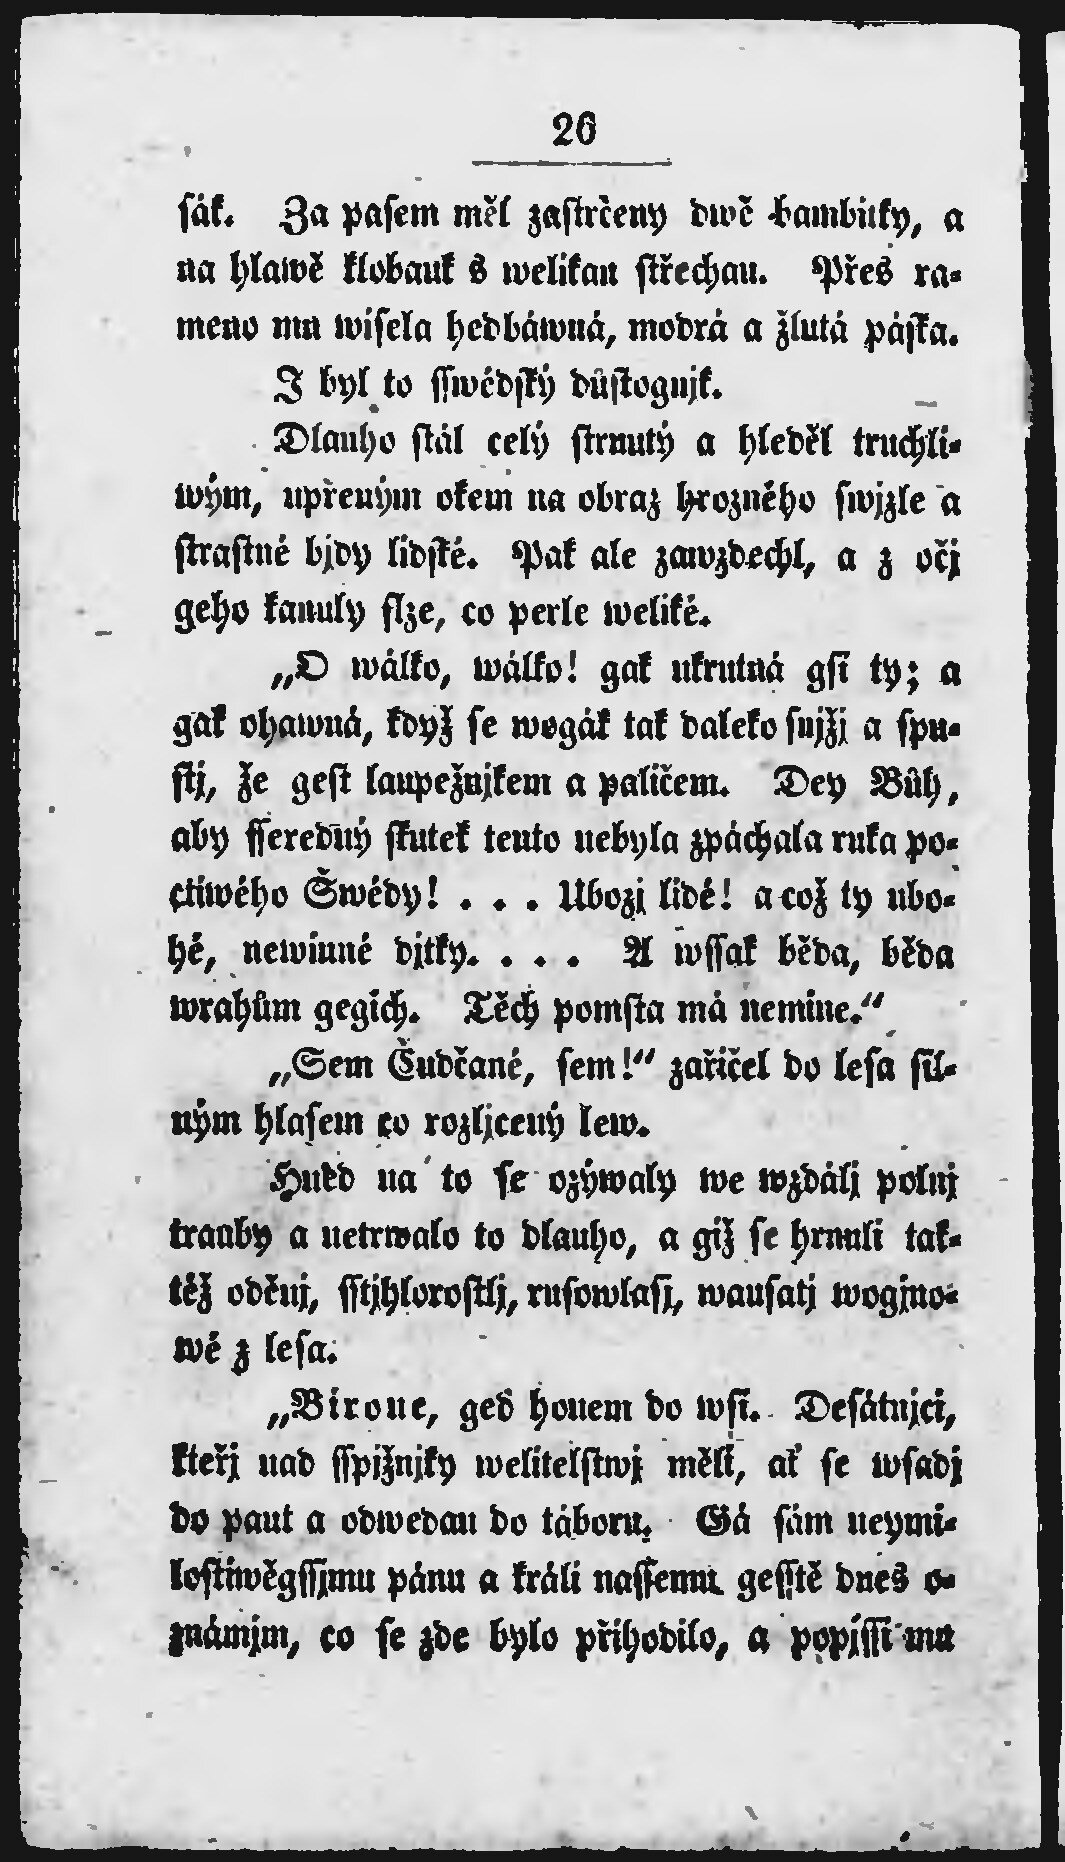 26
sák. Za pasem měl zastrčeny dwě bambitky, a
na hlawě klobauk s welikau střechau. Přes ra-
meno mu wisela hedbáwná, modrá a žlutá páska.
I byl to sswédský důstognjk.
Dlauho stál celý strnutý a hleděl truchli-
wým, upřeným okem na obraz hrozného swjzle a
strastné bjdy lidské. Pak ale zawzdechl, a z očj
geho kanuly slze, co perle weliké.
„O wálko, wálko! gak ukrutná gsi ty; a
gak ohawná, když se wogák tak daleko snjžj a spu-
stj, že gest laupežnjkem a paličem. Dey Bůh,
aby sseredný skutek tento nebyla zpáchala ruka po-
ctiwého Šwédy! . . . Ubozj lidé! a což ty ubo-
hé, newinné djtky. . . . A wssak běda, běda
wrahům gegich. Těch pomsta má nemine.“
„Sem Čudčané, sem!“ zařičel do lesa sil-
ným hlasem co rozljcený lew.
Hned na to se ozýwaly we wzdálj polnj
trauby a netrwalo to dlauho, a giž se hrnuli tak-
též oděnj, sstjhlorostlj, rusowlasj, wausatj wogjno-
wé z lesa.
„Birone, geď honem do wsi. Desátnjci,
kteřj nad sspižnjky welitelstwj měli, ať se wsadj
do paut a odwedau do táboru. Gá sám neymi-
lostiwěgssjmu pánu a králi nassemu gesstě dnes o-
známjm, co se zde bylo přihodilo, a popjssi mu